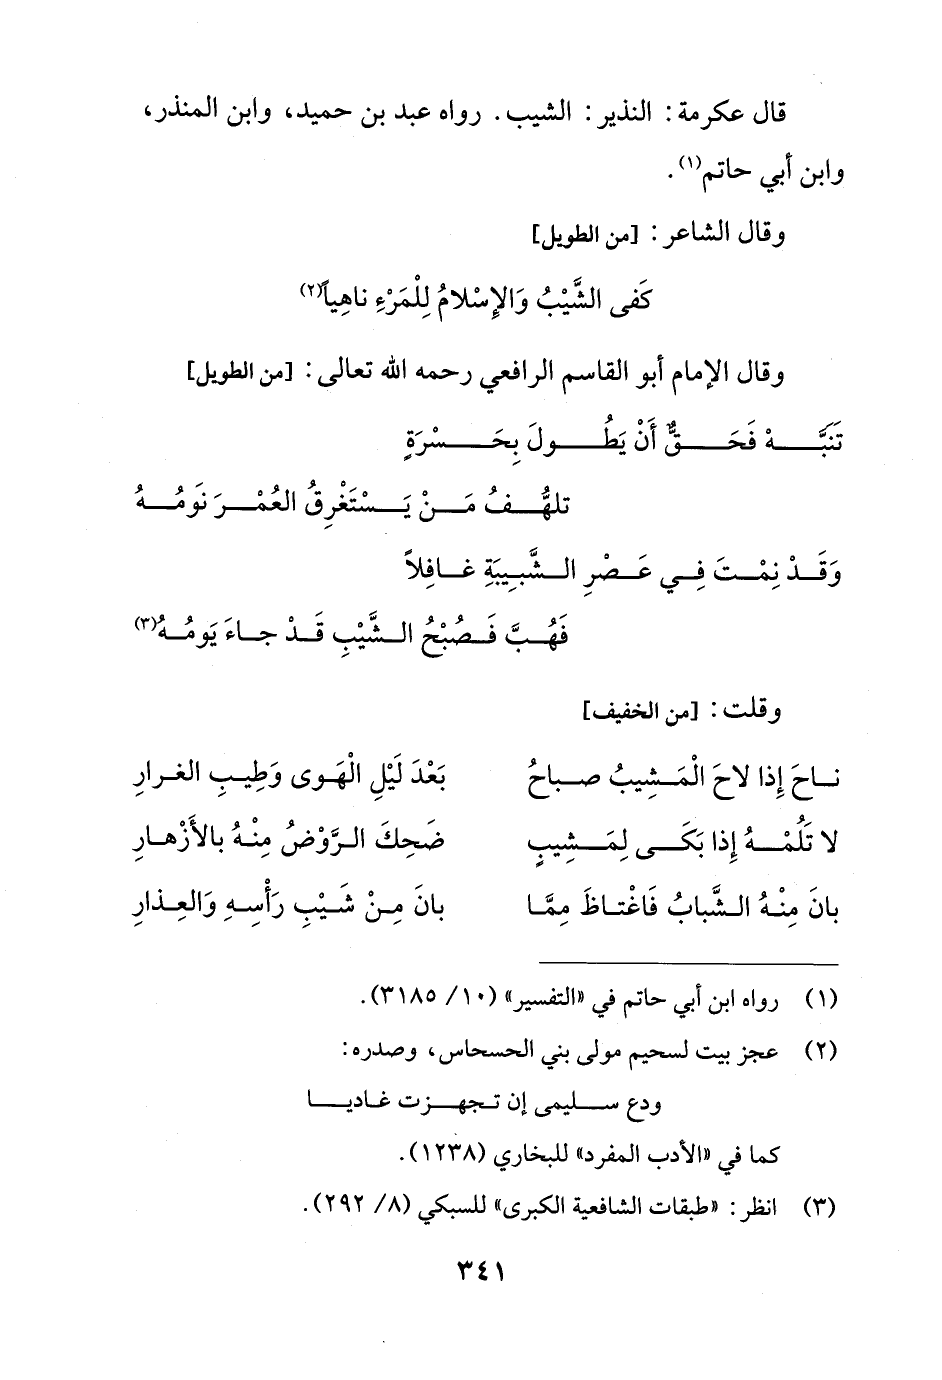 قال عكرمة: النذير: الشيب. رواه عبد بن حميد، وابن المنذر،
وابن أبي حاتم(١).
وقال الشاعر: [من الطويل]
كَفى الشَّيْبُ وَالإِسْلامُ لِلْمَرْءِ ناهِياً(٢)
وقال الإمام أبو القاسم الرافعي رحمه الله تعالى: [من الطويل]
تَنَبَّهْ فَحَقٌّ أَنْ يَطُولَ بِحَسْرَةٍ
تلهُّفُ مَنْ يَسْتَغْرِقُ العُمْرَ نَومُهُ
وَقَدْ نِمْتَ فِي عَصْرِ الشَّبِيبَةِ غافِلاً
فَهُبَّ فَصُبْحُ الشَّيْبِ قَدْ جاءَ يَومُهُ(٣)
وقلت: [من الخفيف]
ناحَ إِذا لاحَ الْمَشِيبُ صباحُ بَعْدَ لَيْلِ الْهَوى وَطِيبِ الغرارِ
لا تَلُمْهُ إِذا بَكَى لِمَشِيبٍ ضَحِكَ الرَّوْضُ مِنْهُ بالأَزْهارِ
بانَ مِنْهُ الشَّبابُ فَاغْتاظَ مِمَّا بانَ مِنْ شَيْبِ رَأْسِهِ وَالعِذارِ
(١) رواه ابن أبي حاتم في «التفسير» (١٠/ ٣١٨٥).
(٢) عجز بيت لسحيم مولى بني الحسحاس، وصدره:
ودع سليمى إن تجهزت غاديا
كما في «الأدب المفرد» للبخاري (١٢٣٨).
(٣) انظر: «طبقات الشافعية الكبرى» للسبكي (٨/ ٢٩٢).
٣٤١